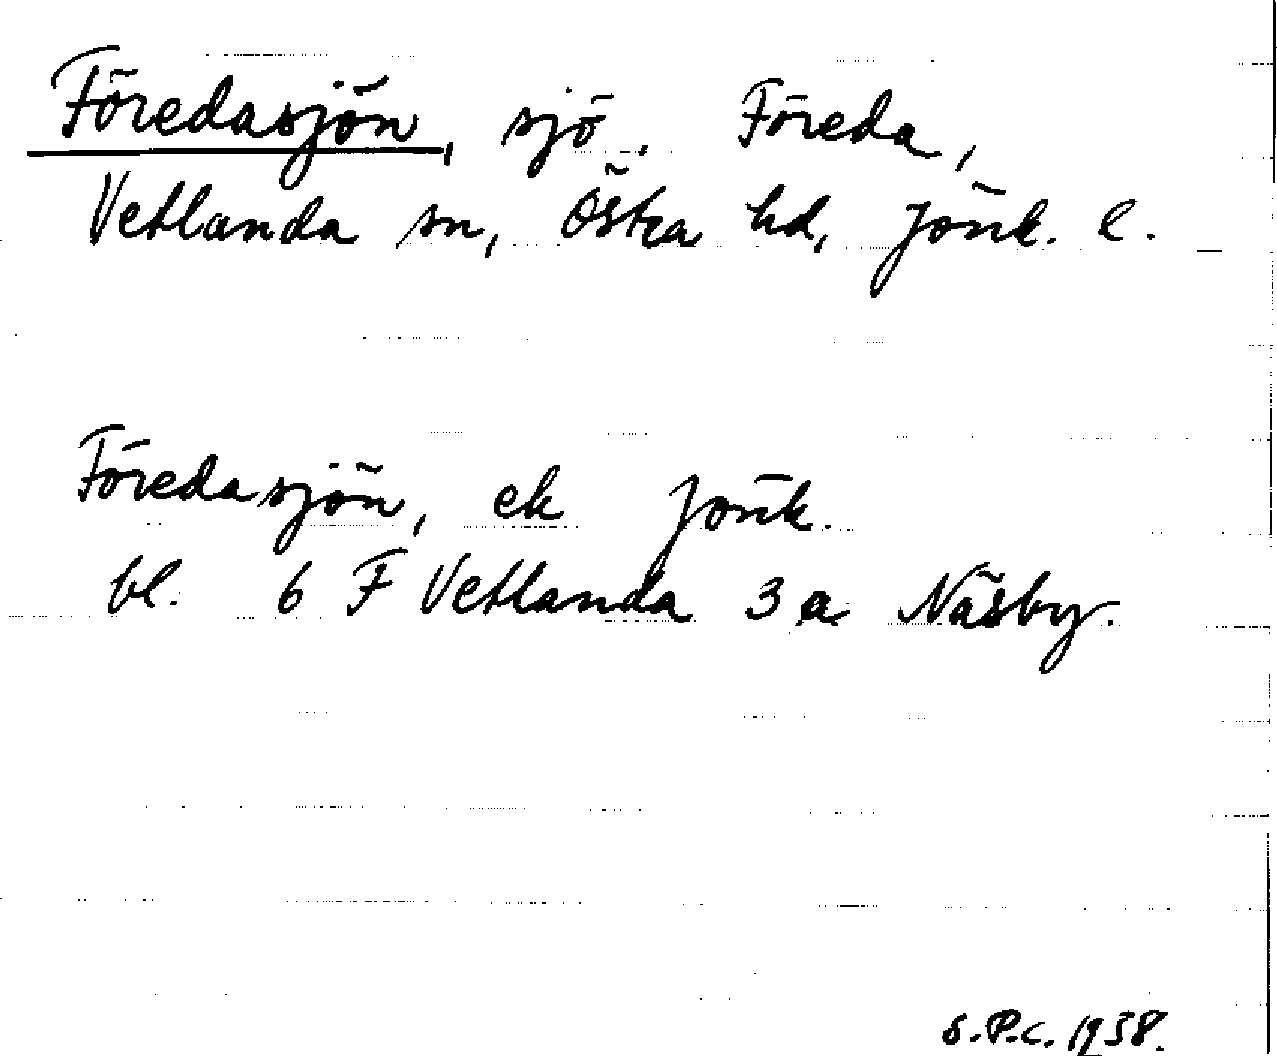 Föredasjön, sjö. Föreda,
Vetlanda sn, Östra hd, Jönk. l.
Föredasjön, ek Jönk.
bl. 6 F Vetlanda 3 a Näsby.
S.P.C. 1958.